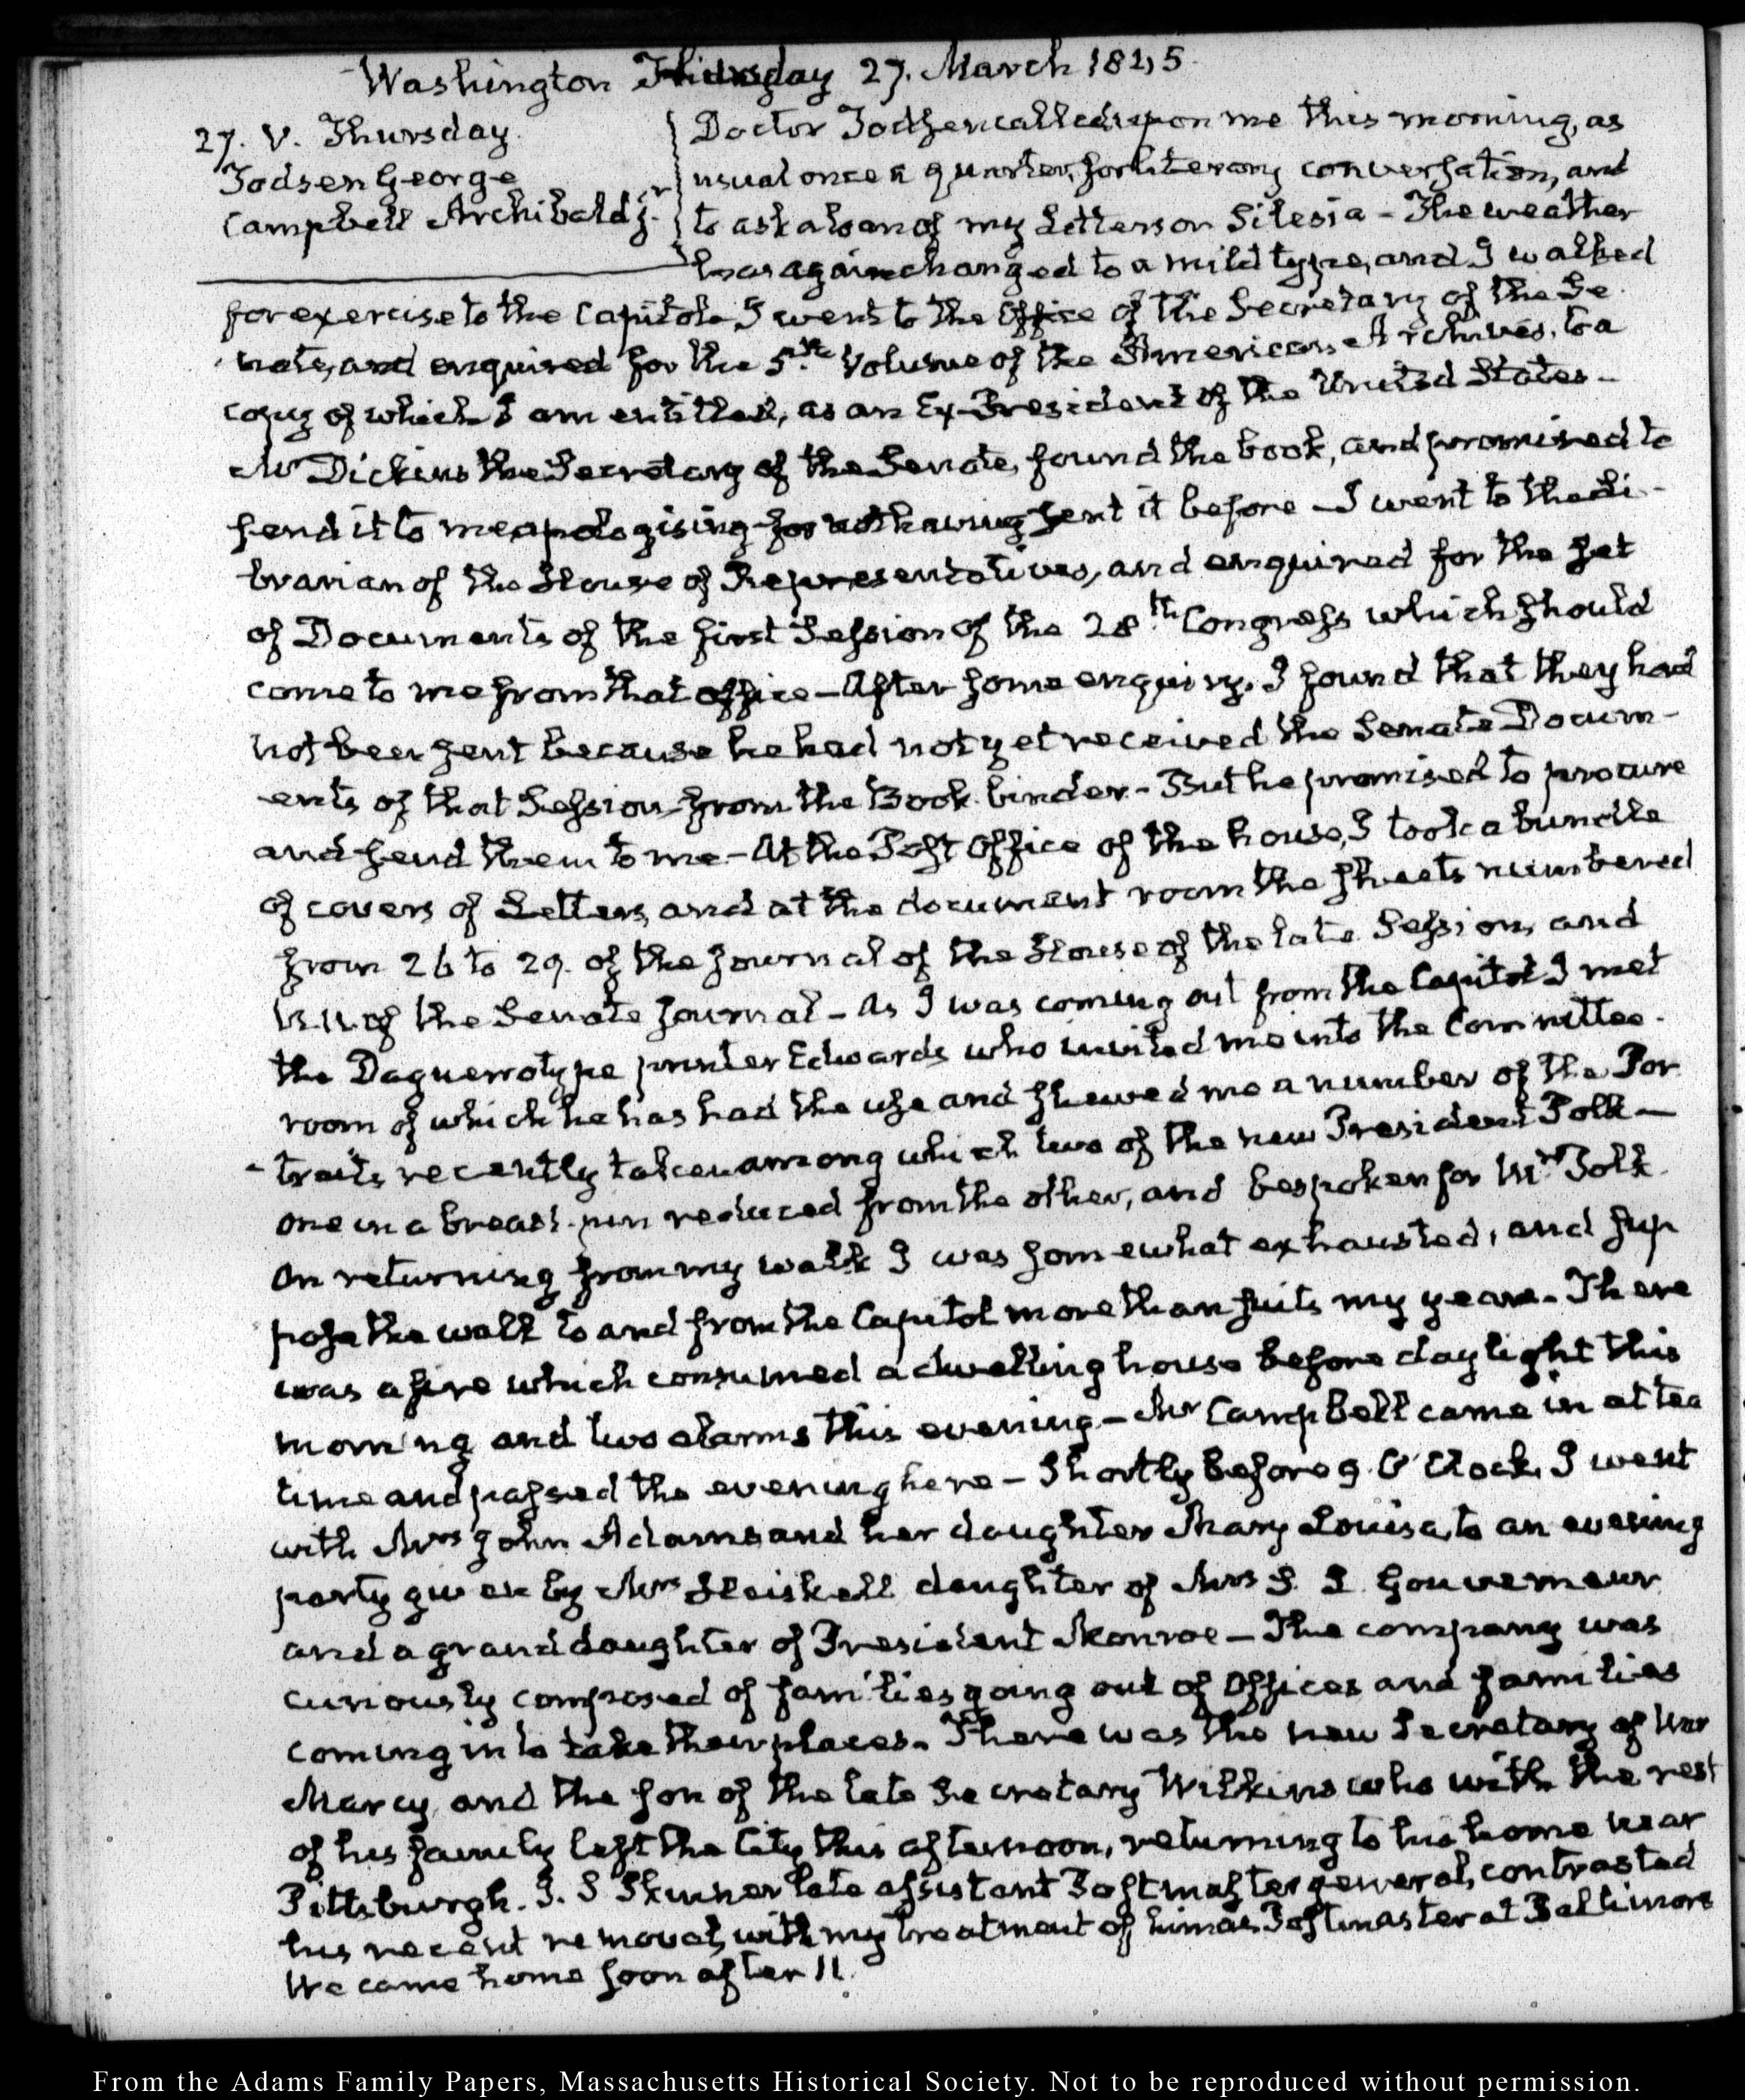 Washington Thursday 27. March 1845.
27. V. Thursday.
Todsen George
Campbell Archibald jr.
Doctor Todsen called upon me this morning, as
usual once a quarter, for literary conversation, and
to ask a loan of my Letters on Silesia – The weather
has again changed to a mild type, and I walked
for exercise to the Capitol. I went to the Office of the Secretary of the Se
nate, and enquired for the 5.th Volume of the American Archives, to a
copy of which I am entitled, as an Ex-President of the United States –
Mr Dickins the Secretary of the Senate, found the book, and promised to
send it to me apologising for not having sent it before – I went to the Li-
brarian of the House of Representatives, and enquired for the set
of Documents of the first Session of the 28th Congress which should
come to me from that office – After some enquiry, I found that they had
not been sent because he had not yet received the Senate Docum-
ents of that Session from the Book binder – But he promised to procure
and send them to me – At the Post Office of the house, I took a bundle
of covers of Letters, and at the document room the sheets numbered
from 26 to 29. of the Journal of the House of the late Session, and
of the Senate Journal – As I was coming out from the Capitol I met
the Daguerrotype printer Edwards who invited me into the Committee
room of which he has had the use and shewed me a number of the Por
traits recently taken among which two of the new President Polk –
one in a breast-pin reduced from the other, and bespoken for Mrs Polk
On returning from my walk I was somewhat exhausted, and sup
pose the walk to and from the Capitol more than suits my years – There
was a fire which consumed a dwelling house before day light this
morning and two alarms this evening – Mr Campbell came in at tea
time and passed the evening here – Shortly before 9. O'Clock, I went
with Mrs John Adams and her daughter Mary Louisa, to an evening
party given by Mrs Heiskell daughter of Mrs S. L Gouverneur
and a grand daughter of President Monroe – The company was
curiously composed of families going out of Offices and families
coming in to take their places. There was the new Secretary of War
Marcy, and the son of the late Secretary Wilkins who with the rest
of his family left the City this afternoon, returning to his home near
Pittsburgh. J. S Skinner late assistant Postmaster general, contrasted
his recent removal, with my treatment of him as Postmaster at Baltimore
We came home soon after 11.
From the Adams Family Papers, Massachusetts Historical Society. Not to be reproduced without permission.